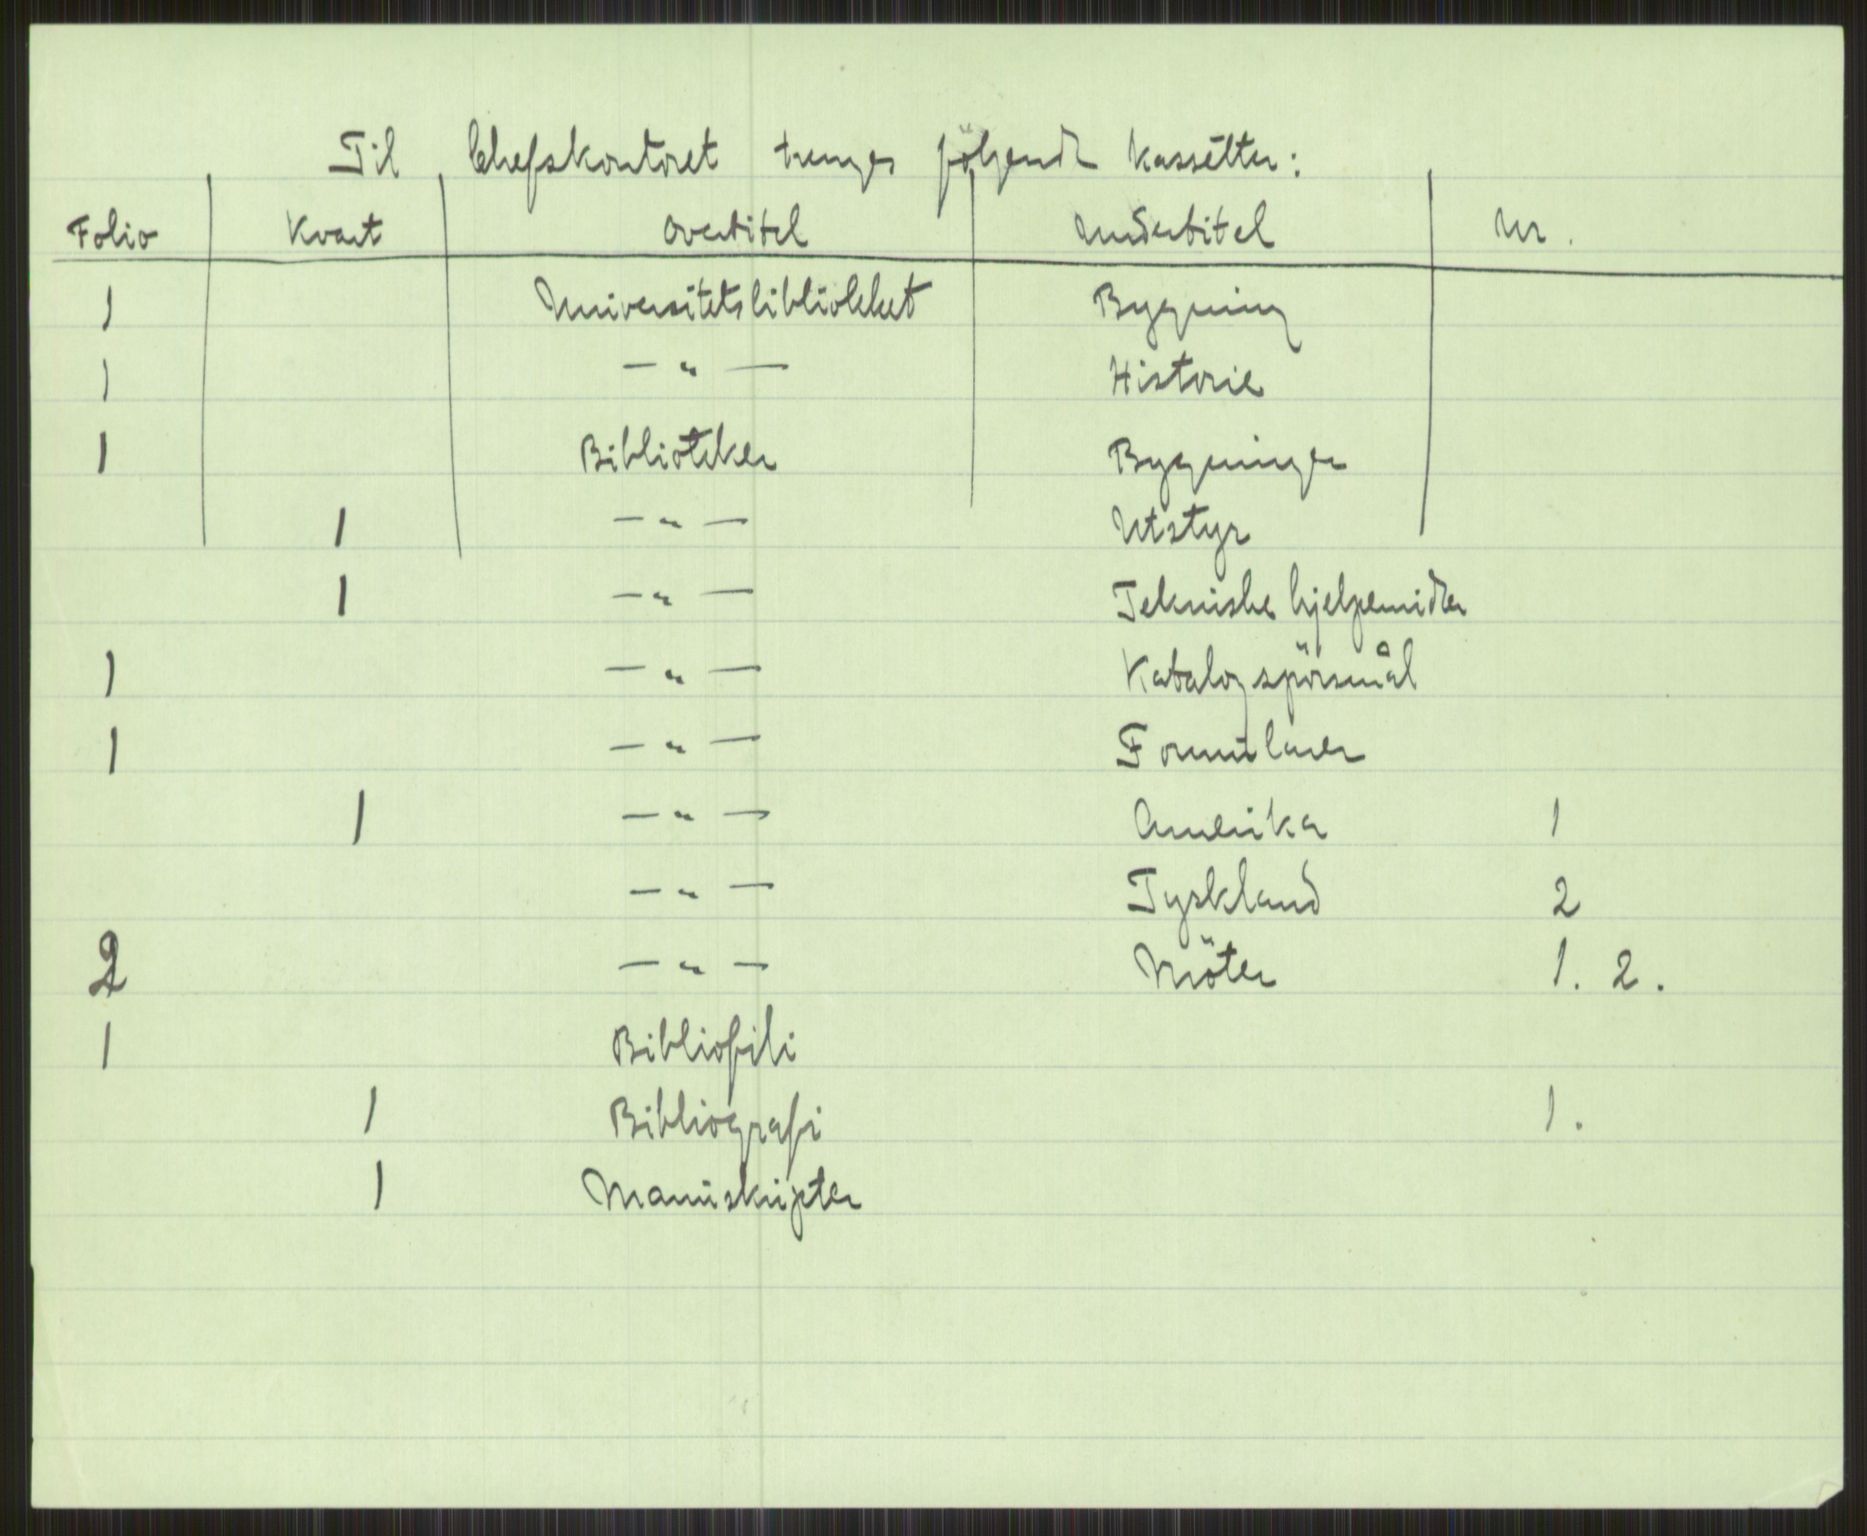 Til Chefskontoret trenges følgende kassetter:
Folio Kvart Overtitel Undertitel Nr.
1 Universitetsbiblioteket Bygning
1 — " — Historie
1 Biblioteker Bygninger
1 — " — Utstyr
1 — " — Tekniske hjelpemidler
1 — " — Katalogspörsmål
1 — " — Formularer
1 — " — Amerika 1
— " — Tyskland 2
2 — " — Möter 1. 2.
1 Bibliofili
1 Bibliografi 1.
1 Manuskripter